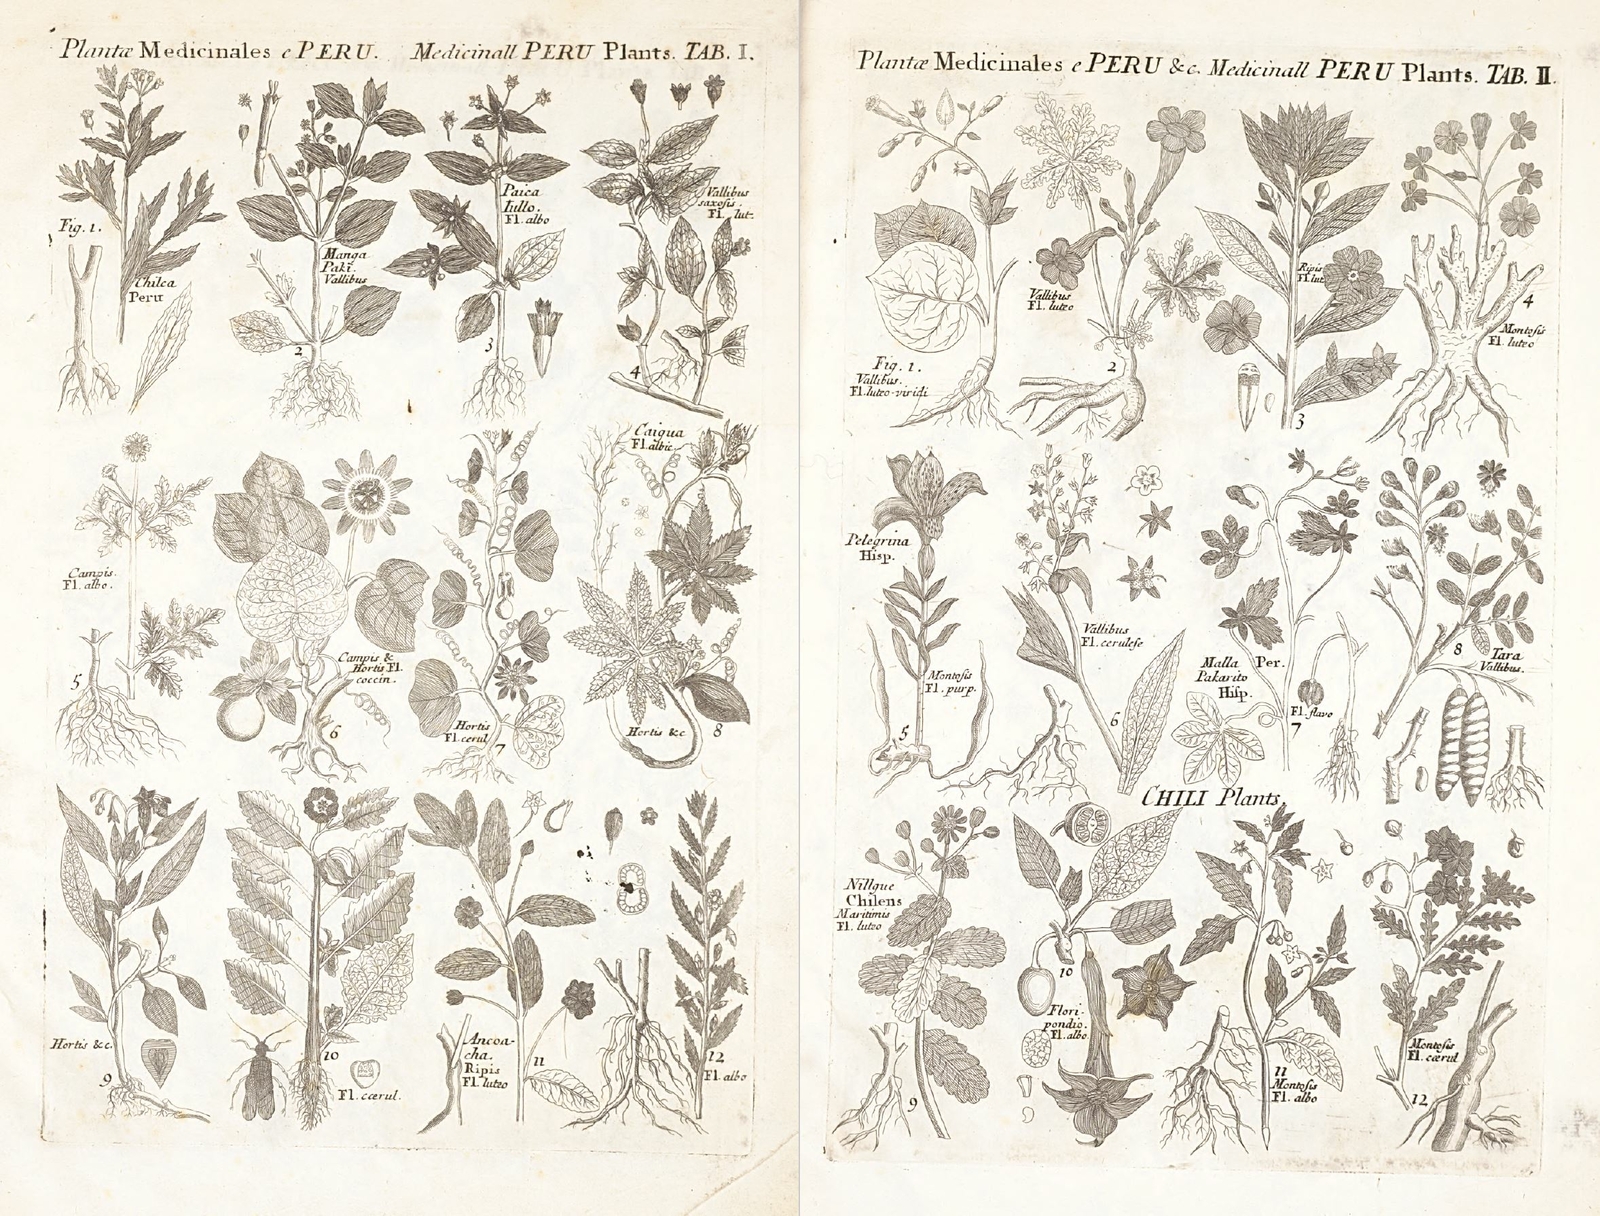 Plantæ Medicinales e PERU. Medicinall PERU Plants. TAB. I.
Fig. 1.
Chilca
Peru
Manga
Paki.
Vallibus
2
Paica
Iullo.
Fl. albo
3
Vallibus
saxosis.
Fl. lut.
4
Campis.
Fl. albo.
5
Campis &
Hortis Fl.
coccin.
6
Hortis
Fl. cerul
7
Caigua
Fl. albic.
Hortis &c
8
Hortis &c.
9
10
Fl. cærul.
Ancoa-
cha.
Ripis
Fl. luteo
11
12
Fl. albo
Plantæ Medicinales e PERU &c. Medicinall PERU Plants. TAB. II.
Fig. 1.
Vallibus.
Fl. luteo-viridi
Vallibus
Fl. luteo
2
Ripis
Fl. lut.
3
4
Montosis
Fl. luteo
Pelegrina
Hisp.
Montosis
Fl. purp.
5
Vallibus
Fl. cerulese
6
Malla Per.
Pakarito
Hisp.
Fl. flavo
7
8
Tara
Vallibus.
CHILI Plants,
Nillgue
Chilens
Maritimis
Fl. luteo
9
10
Flori-
pondio.
Fl. albo
11
Montosis
Fl. albo
Montosis
Fl. cærul
12